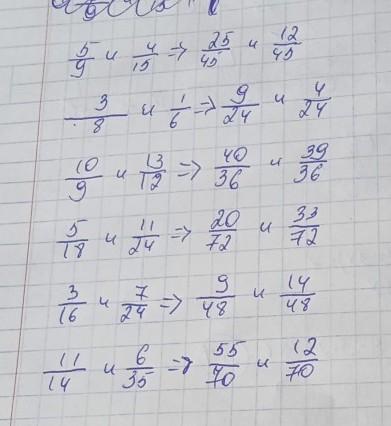 5/9 и 4/15 => 25/45 и 12/45
3/8 и 1/6 => 9/24 и 4/24
10/9 и 13/12 => 40/36 и 39/36
5/18 и 11/24 => 20/72 и 33/72
3/16 и 7/24 => 9/48 и 14/48
11/14 и 6/35 => 55/70 и 12/70